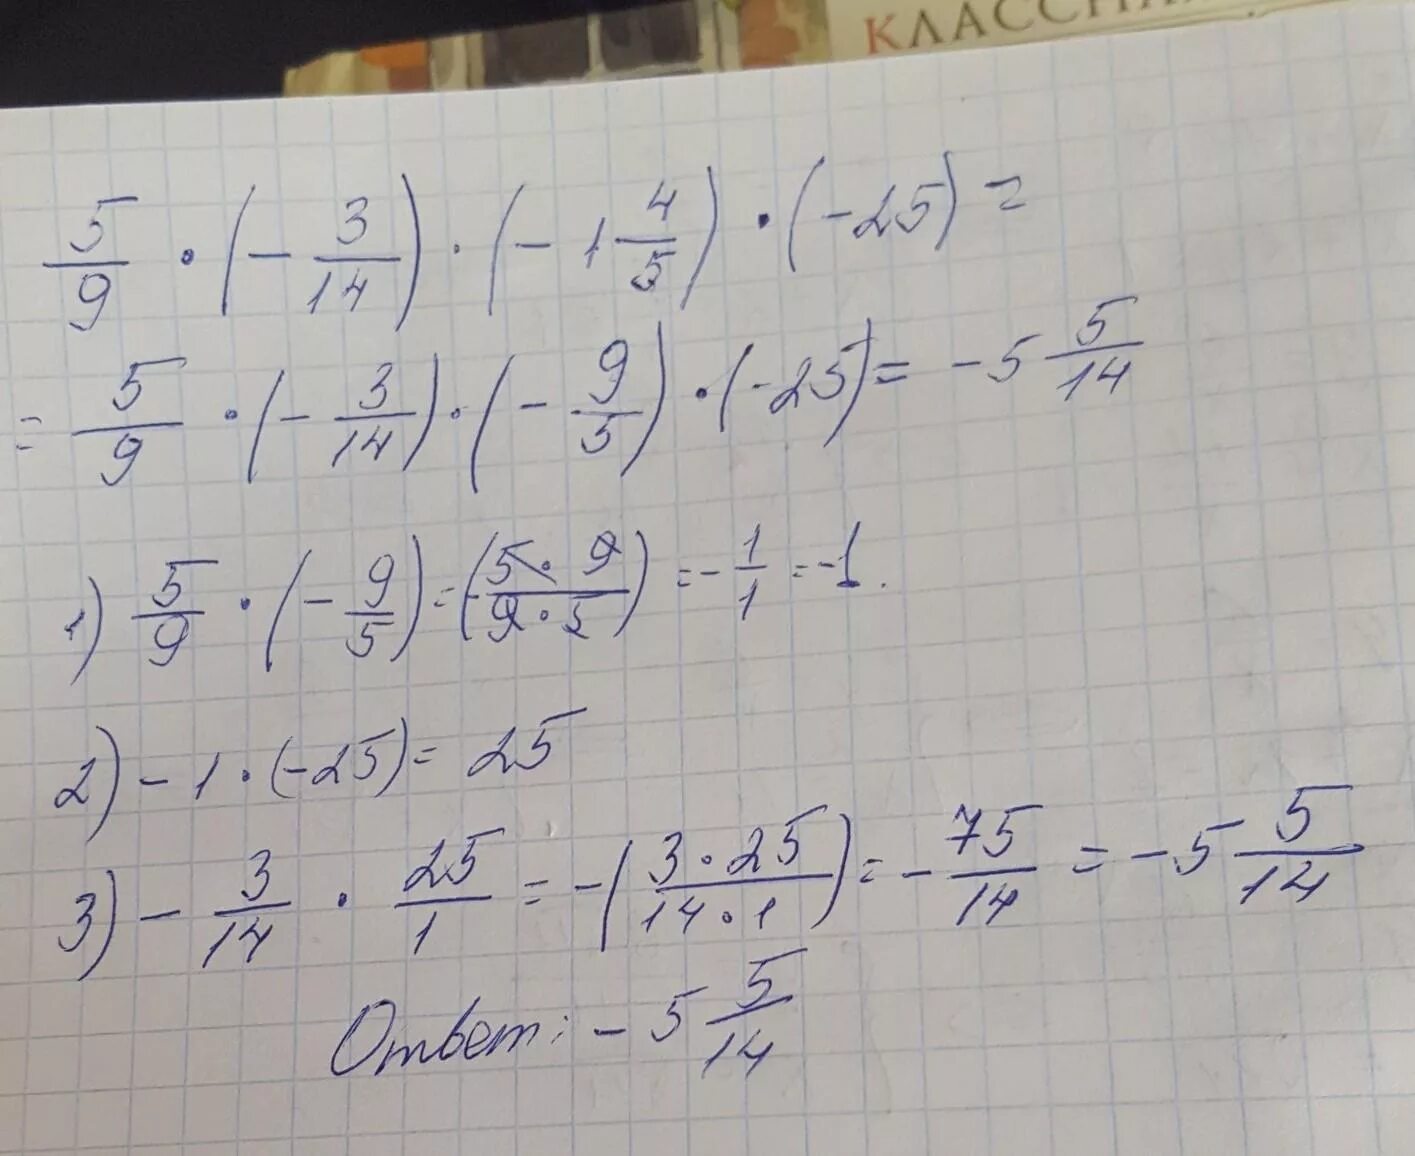 КЛАССНА
5/9 · (- 3/14) · (- 1 4/5) · (-25) =
= 5/9 · (- 3/14) · (- 9/5) · (-25) = - 5 5/14
1) 5/9 · (- 9/5) = (- 5 · 9/9 · 5) = - 1/1 = -1.
2) - 1 · (-25) = 25
3) - 3/14 · 25/1 = - (3 · 25/14 · 1) = - 75/14 = - 5 5/14
Ответ: - 5 5/14